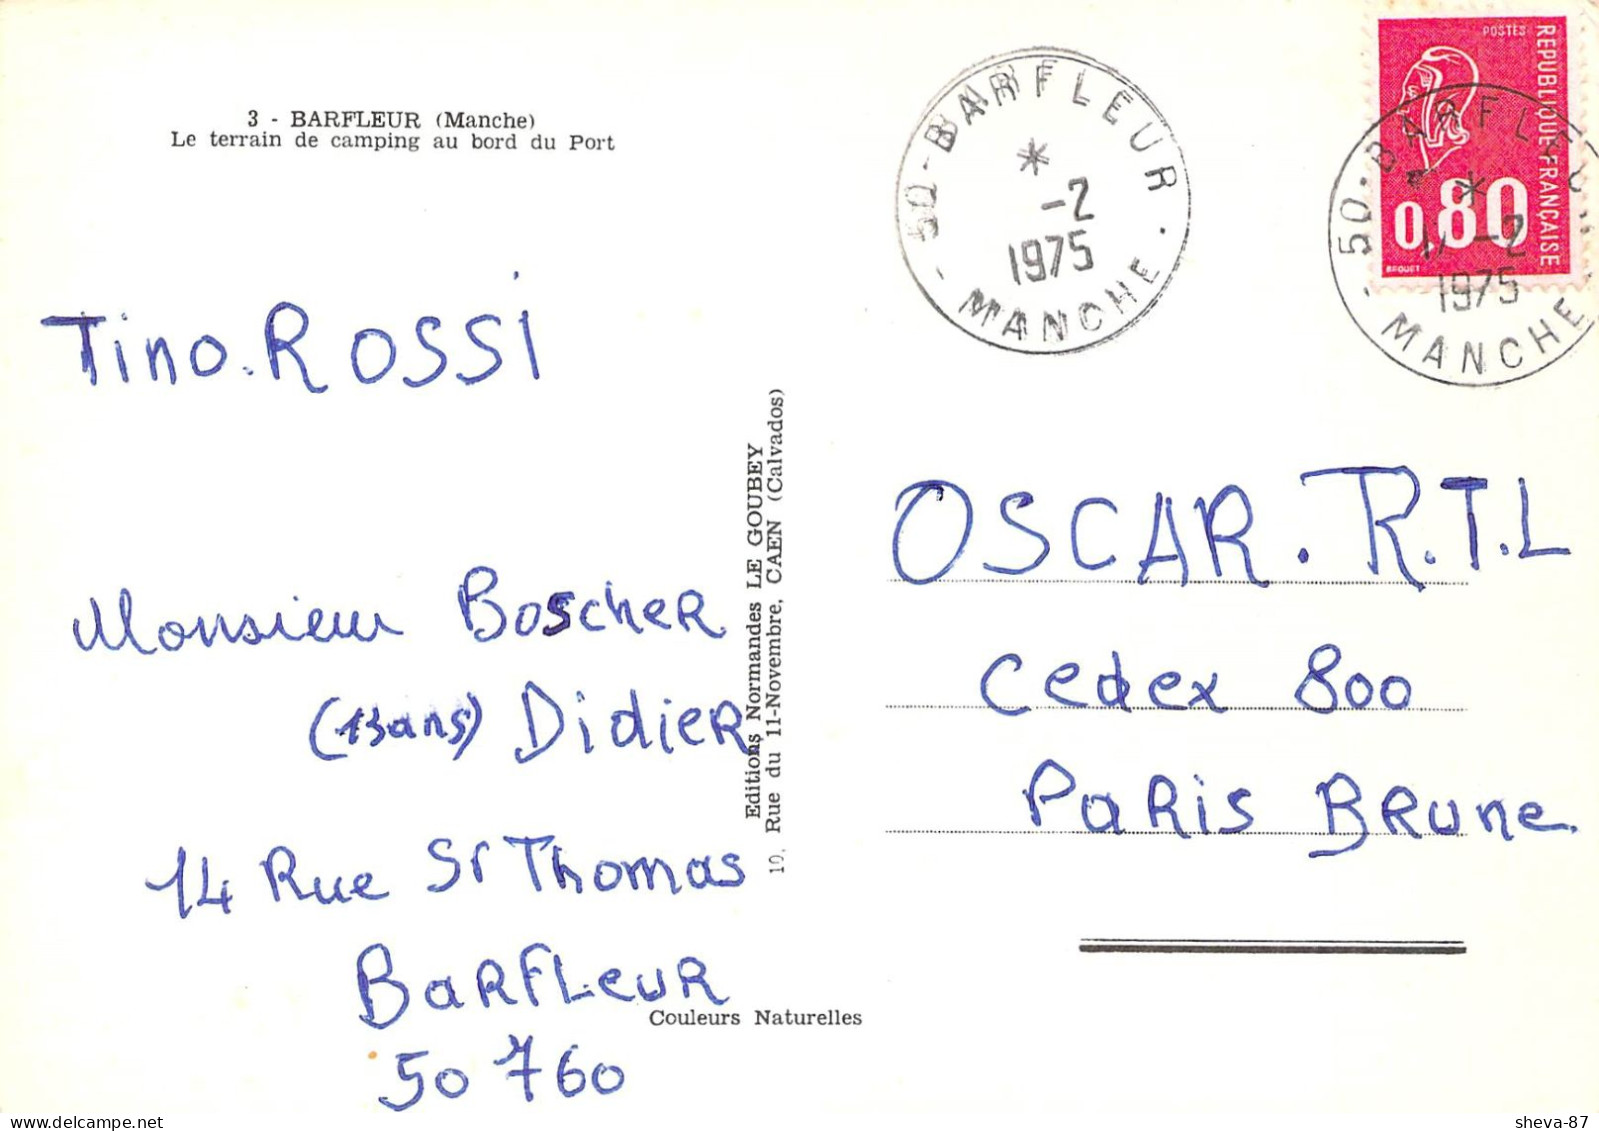 3 - BARFLEUR (Manche)
Le terrain de camping au bord du Port
50 - BARFLEUR
*
-2
1975
- MANCHE .
POSTES
REPUBLIQUE FRANÇAISE
0,80
BEQUET
50 - BARFLEUR
*
11 -2
1975
- MANCHE
Tino. ROSSI
Monsieur Boscher
(13ans) Didier
14 Rue St Thomas
Barfleur
50 760
Editions Normandes LE GOUBEY
10, Rue du 11-Novembre, CAEN (Calvados)
Couleurs Naturelles
OSCAR. R.T.L
Cedex 800
Paris Brune
sheva-87